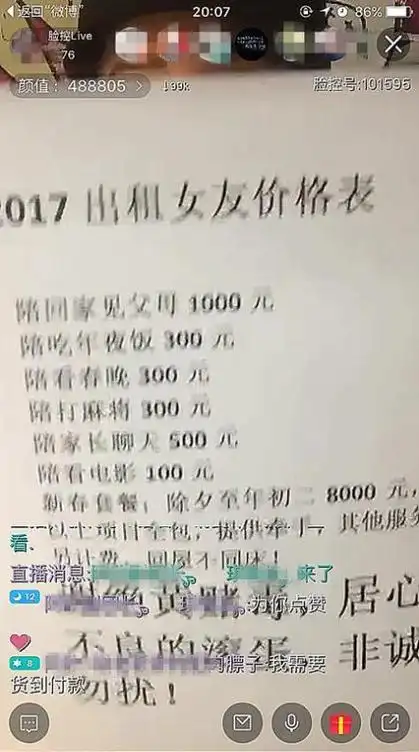 返回“微博”
20:07
86%
脸控Live
76
颜值：488805 >
199k
脸控号:101595
2017 出租女友价格表
陪回家见父母 1000 元
陪吃年夜饭 300 元
陪看春晚 300 元
陪打麻将 300 元
陪家长聊天 500 元
陪看电影 100 元
新春套餐，除夕至年初二 8000 元，
以上项目全包，提供牵手，其他服务
另计费，同屋不同床！
看、
直播消息:
来了
黄赌毒，居心
12
为你点赞
不良的滚蛋，非诚
8
:我需要
货到付款
勿扰！